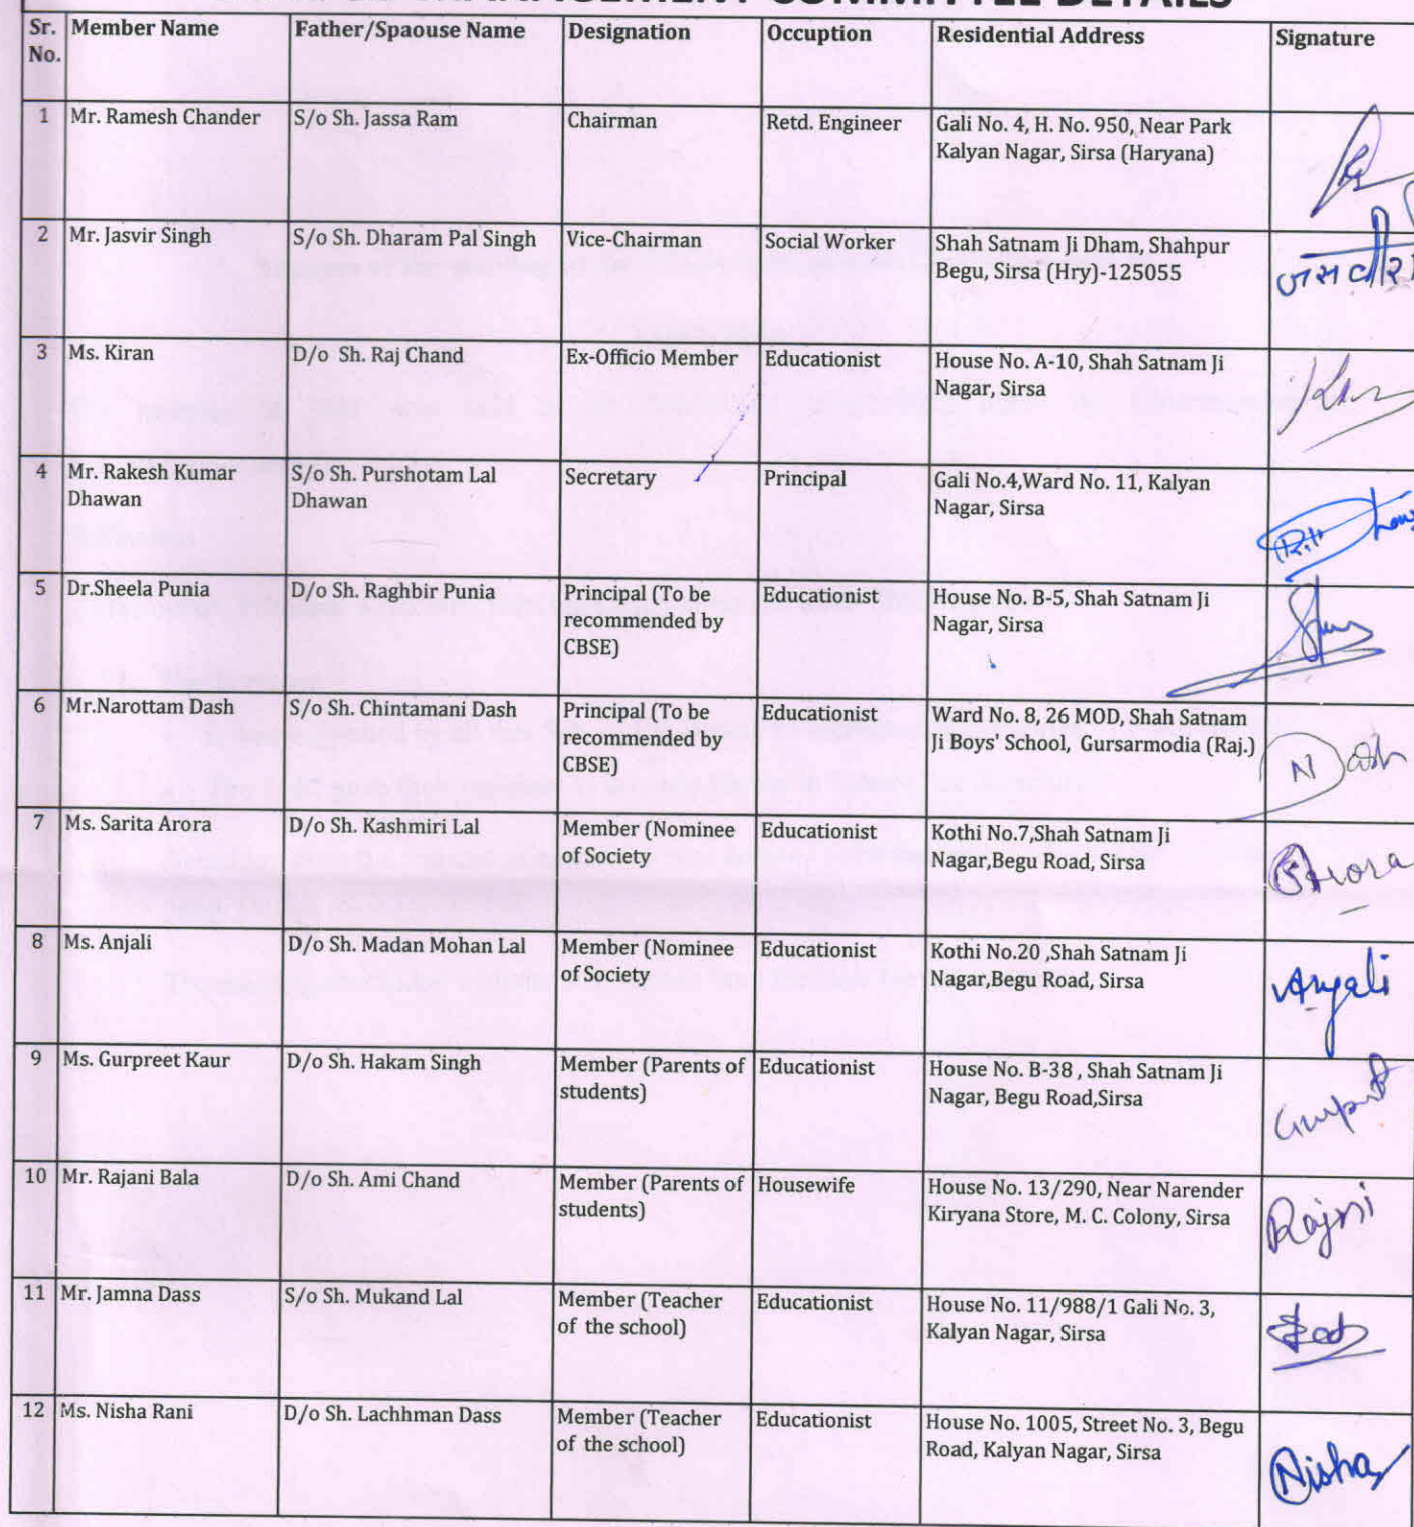 MANAGEMENT COMMITTEE DETAILS
Sr. No. Member Name Father/Spaouse Name Designation Occuption Residential Address Signature
1 Mr. Ramesh Chander S/o Sh. Jassa Ram Chairman Retd. Engineer Gali No. 4, H. No. 950, Near Park
Kalyan Nagar, Sirsa (Haryana)
2 Mr. Jasvir Singh S/o Sh. Dharam Pal Singh Vice-Chairman Social Worker Shah Satnam Ji Dham, Shahpur
Begu, Sirsa (Hry)-125055
3 Ms. Kiran D/o Sh. Raj Chand Ex-Officio Member Educationist House No. A-10, Shah Satnam Ji
Nagar, Sirsa
4 Mr. Rakesh Kumar S/o Sh. Purshotam Lal Secretary Principal Gali No.4,Ward No. 11, Kalyan
Dhawan Dhawan Nagar, Sirsa
5 Dr.Sheela Punia D/o Sh. Raghbir Punia Principal (To be Educationist House No. B-5, Shah Satnam Ji
recommended by Nagar, Sirsa
CBSE)
6 Mr.Narottam Dash S/o Sh. Chintamani Dash Principal (To be Educationist Ward No. 8, 26 MOD, Shah Satnam
recommended by Ji Boys' School, Gursarmodia (Raj.) N Dash
CBSE)
7 Ms. Sarita Arora D/o Sh. Kashmiri Lal Member (Nominee Educationist Kothi No.7,Shah Satnam Ji
of Society Nagar,Begu Road, Sirsa
8 Ms. Anjali D/o Sh. Madan Mohan Lal Member (Nominee Educationist Kothi No.20 ,Shah Satnam Ji
of Society Nagar,Begu Road, Sirsa Anjali
9 Ms. Gurpreet Kaur D/o Sh. Hakam Singh Member (Parents of Educationist House No. B-38 , Shah Satnam Ji
students) Nagar, Begu Road,Sirsa
10 Mr. Rajani Bala D/o Sh. Ami Chand Member (Parents of Housewife House No. 13/290, Near Narender
students) Kiryana Store, M. C. Colony, Sirsa Rajni
11 Mr. Jamna Dass S/o Sh. Mukand Lal Member (Teacher Educationist House No. 11/988/1 Gali No. 3,
of the school) Kalyan Nagar, Sirsa
12 Ms. Nisha Rani D/o Sh. Lachhman Dass Member (Teacher Educationist House No. 1005, Street No. 3, Begu
of the school) Road, Kalyan Nagar, Sirsa Nisha